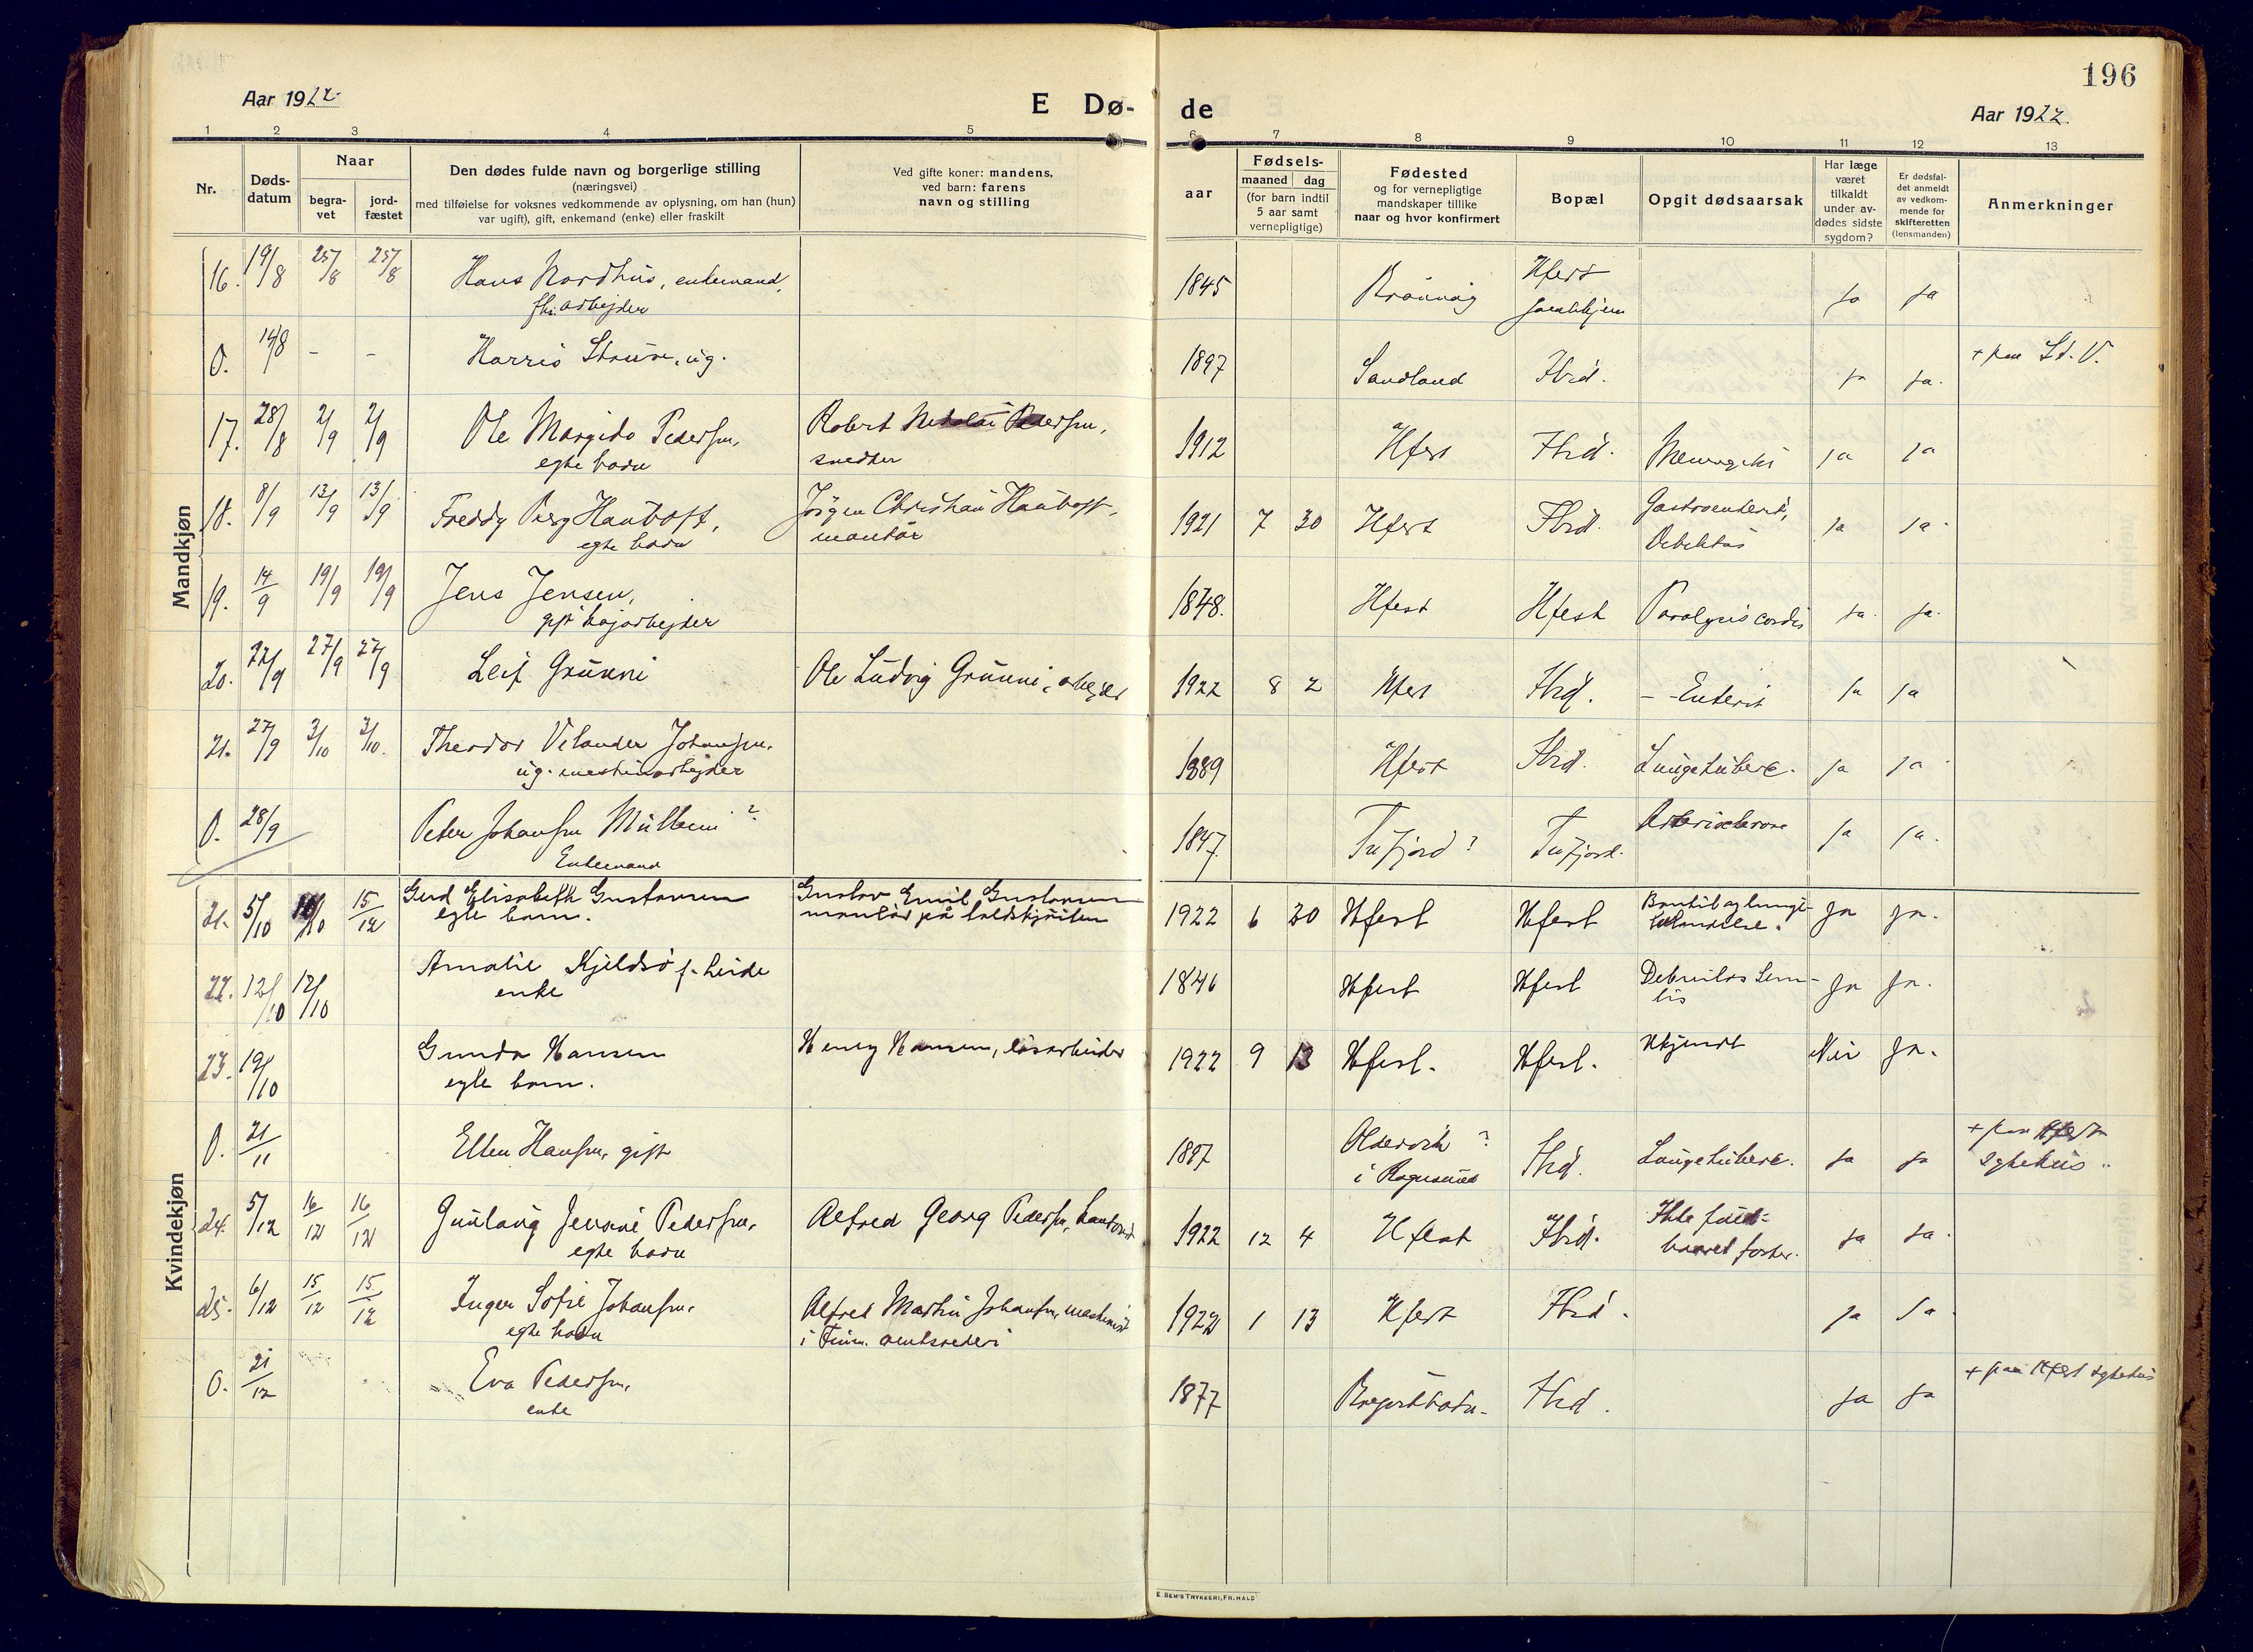 196
Aar 1922
E Dø-
de
Aar 1922.
1 2 3 4 5 6 7 8 9 10 11 12 13
Nr.
Døds-
datum
Naar
begra-
vet
jord-
fæstet
Den dødes fulde navn og borgerlige stilling
(næringsvei)
med tilføielse for voksnes vedkommende av oplysning, om han (hun)
var ugift), gift, enkemand (enke) eller fraskilt
Ved gifte koner: mandens,
ved barn: farens
navn og stilling
aar
Fødsels-
maaned dag
(for barn indtil
5 aar samt
vernepligtige)
Fødested
og for vernepligtige
mandskaper tillike
naar og hvor konfirmert
Bopæl
Opgit dødsaarsak
Har læge
været
tilkaldt
under av-
dødes sidste
sygdom?
Er dødsfal-
det anmeldt
av vedkom-
mende for
skifteretten
(lensmanden)
Anmerkninger
Mandkjøn
16. 19/8 25/8 25/8 Hans Nordhus, enkemand, 1845 Hfest ja ja
fhv. arbejder
0. 14/8 - - Harris ug. 1897 Sandland Ibid. ja ja. + paa St. V.
17. 28/8 2/9 2/9 Ole Margido Pedersen, Robert Nikolai Pedersen, 1912 Hfest Ibid. ja ja
egte barn snedker
18. 8/9 13/9 13/9 Freddy Berg Hauboff, Jørgen Christian Hauboff, 1921 7 30 Hfest Ibid. Gastroenterit, ja ja.
egte barn montør
19. 14/9 19/9 19/9 Jens Jensen, 1848. Hfest Hfest Paralysis cordis ja. ja.
gift kajarbejder
20. 22/9 27/9 27/9 Leif Grunni Ole Ludvig Grunni, arbejder 1922 8 2 Hfest Ibid. - Enterit ja ja
21. 27/9 3/10 3/10. Theodor Velander Johansen. 1889 Hfest Ibid. Lungetuberc. ja ja.
ug. maskinarbejder
0. 28/9 Peter Johansen ? 1847. Tufjord? Tufjord. Arteriosclerose ja ja.
Enkemand
Kvindekjøn
21. 5/10 15/12 Gerd Elisabeth Gustavsen Gustav Emil Gustavsen 1922 6 30 Hfest Hfest Ja Ja.
egte barn. montør på
22. 12/10 12/10 Amalie Kjeldsø f. Linde 1846 Hfest Hfest Ja Ja.
enke
23. 19/10 Gunda Hansen Henry Hansen, løsarbeider 1922 9 13 Hfest. Hfest. Ukjendt Nei Ja.
egte barn.
0. 21/11 Ellen Hansen, gift 1897 Oldervik ? Ibid. Lungetuberc. ja ja + paa Hfest
i Rognsund sykehus
24. 5/12 16/12 16/12 Gunlaug Jensine Pedersen, Alfred Georg Pedersen, 1922 12 4 Hfest Ibid. Ikke fuld- ja ja.
egte barn baaret foster.
25. 6/12 15/12 15/12 Inger Sofie Johansen, Alfred Martin Johansen, maskinist 1922 1 13 Hfest Ibid. ja ja.
egte barn i Finm. amtsrederi
0. 21/12 Eva Pedersen, 1877 Ibid. ja ja + paa Hfest sykehus
enke
E. SEM'S TRYKKERI, FR.HALD